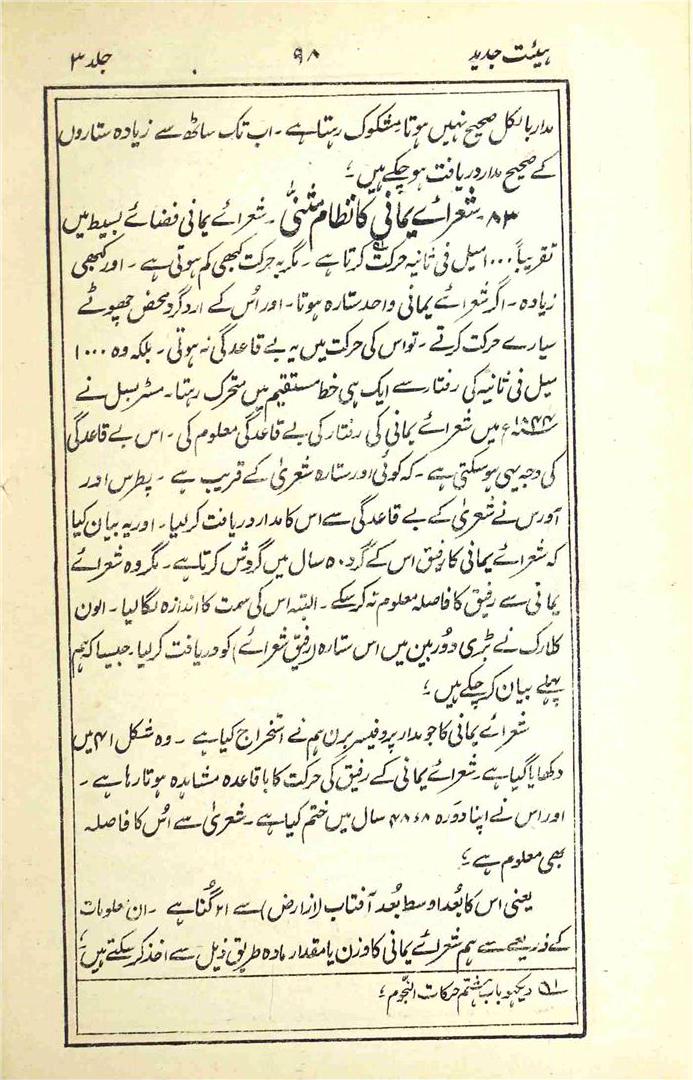 ہیئت جدید ۹۸ جلد ۳
مدار بالکل صحیح نہیں ہوتا مشکوک رہتا ہے ۔ اب تک ساٹھ سے زیادہ ستاروں
کے صحیح مدار دریافت ہو چکے ہیں ؛
۸۳۔ شعرائے یمانی کا نظام مثنیٰ ۔ شعرائے یمانی فضائے بسیط میں
تقریباً ۱۰۰۰ میل فی ثانیہ حرکت کرتا ہے ۔ مگر یہ حرکت کبھی کم ہوتی ہے ۔ اور کبھی
زیادہ ۔ اگر شعرائے یمانی واحد ستارہ ہوتا ۔ اور اُس کے اردگرد محض چھوٹے
سیارے حرکت کرتے ۔ تو اس کی حرکت میں یہ بے قاعدگی نہ ہوتی ۔ بلکہ وہ ۱۰۰۰
میل فی ثانیہ کی رفتار سے ایک ہی خط مستقیم میں متحرک رہتا ۔ مسٹر بسل نے
۱۸۴۴ء میں شعرائے یمانی کی رفتار کی بے قاعدگی معلوم کی ۔ اس بے قاعدگی
کی وجہ یہی ہو سکتی ہے ۔ کہ کوئی اور ستارہ شعریٰ کے قریب ہے ۔ پطرس اور
آورس نے شعریٰ کے بے قاعدگی سے اس کا مدار دریافت کر لیا ۔ اور یہ بیان کیا
کہ شعرائے یمانی کا رفیق اس کے گرد ۵۰ سال میں گردش کرتا ہے ۔ مگر وہ شعرائے
یمانی سے رفیق کا فاصلہ معلوم نہ کر سکے ۔ البتہ اس کی سمت کا اندازہ لگا لیا ۔ الون
کلارک نے بڑی دوربین میں اس ستارہ (رفیق شعرائے) کو دریافت کر لیا ۔ جیسا کہ ہم
پہلے بیان کر چکے ہیں ؛
شعرائے یمانی کا جو مدار پروفیسر برن ہم نے استخراج کیا ہے ۔ وہ شکل ۴۱ میں
دکھایا گیا ہے ۔ شعرائے یمانی کے رفیق کی حرکت کا باقاعدہ مشاہدہ ہوتا رہا ہے ۔
اور اس نے اپنا دورہ ۴۸ء۸ سال میں ختم کیا ہے ۔ شعریٰ سے اُس کا فاصلہ
بھی معلوم ہے ؛
یعنی اس کا بُعد اوسط بُعد آفتاب (از ارض) سے ۲۱ گُنا ہے ۔ ان معلومات
کے ذریعے سے ہم شعرائے یمانی کا وزن یا مقدار مادہ طریق ذیل سے اخذ کر سکتے ہیں ؛
دیکھو باب ہشتم حرکات النجوم ؛